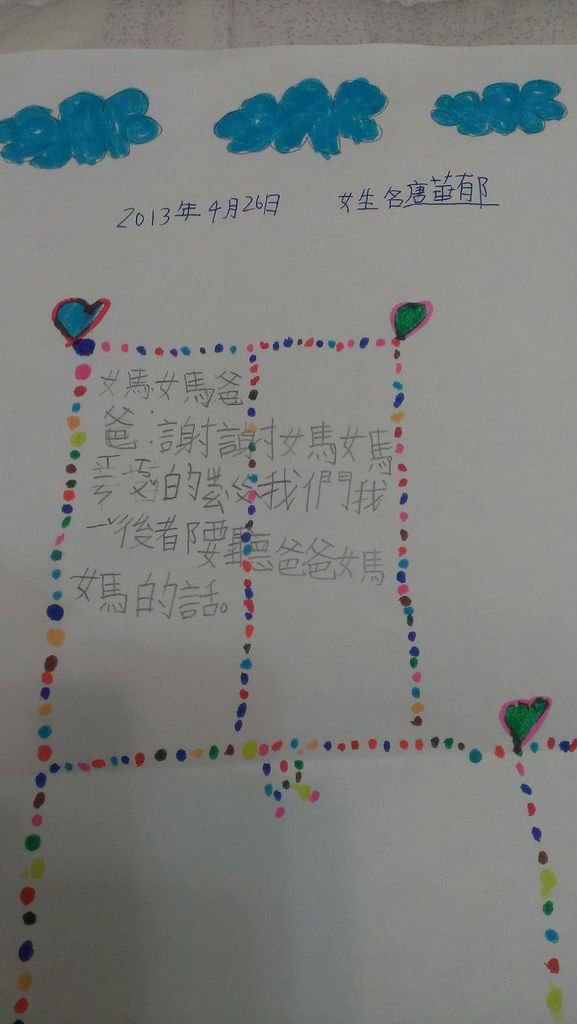 2013年4月26日 女生名唐華郁
媽媽爸
爸:謝謝媽媽
辛 的 給我們我
以後都要聽爸爸媽
媽的話。